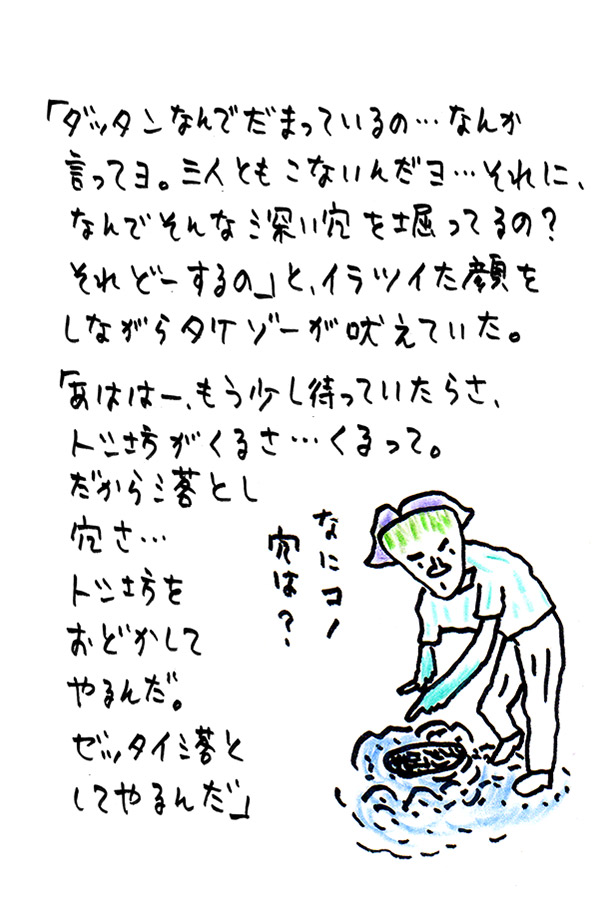 「ダッタンなんでだまっているの…なんか
言ってヨ。三人ともこないんだヨ…それに、
なんでそんな深い穴を堀ってるの？
それどーするの」と、イラツイた顔を
しながらタケゾーが吠えていた。
「あははー、もう少し待っていたらさ、
トン坊がくるさ…くるって。
だから落とし
穴さ…
トン坊を
おどかして
やるんだ。
ゼッタイ落と
してやるんだ」
なにコノ
穴は？